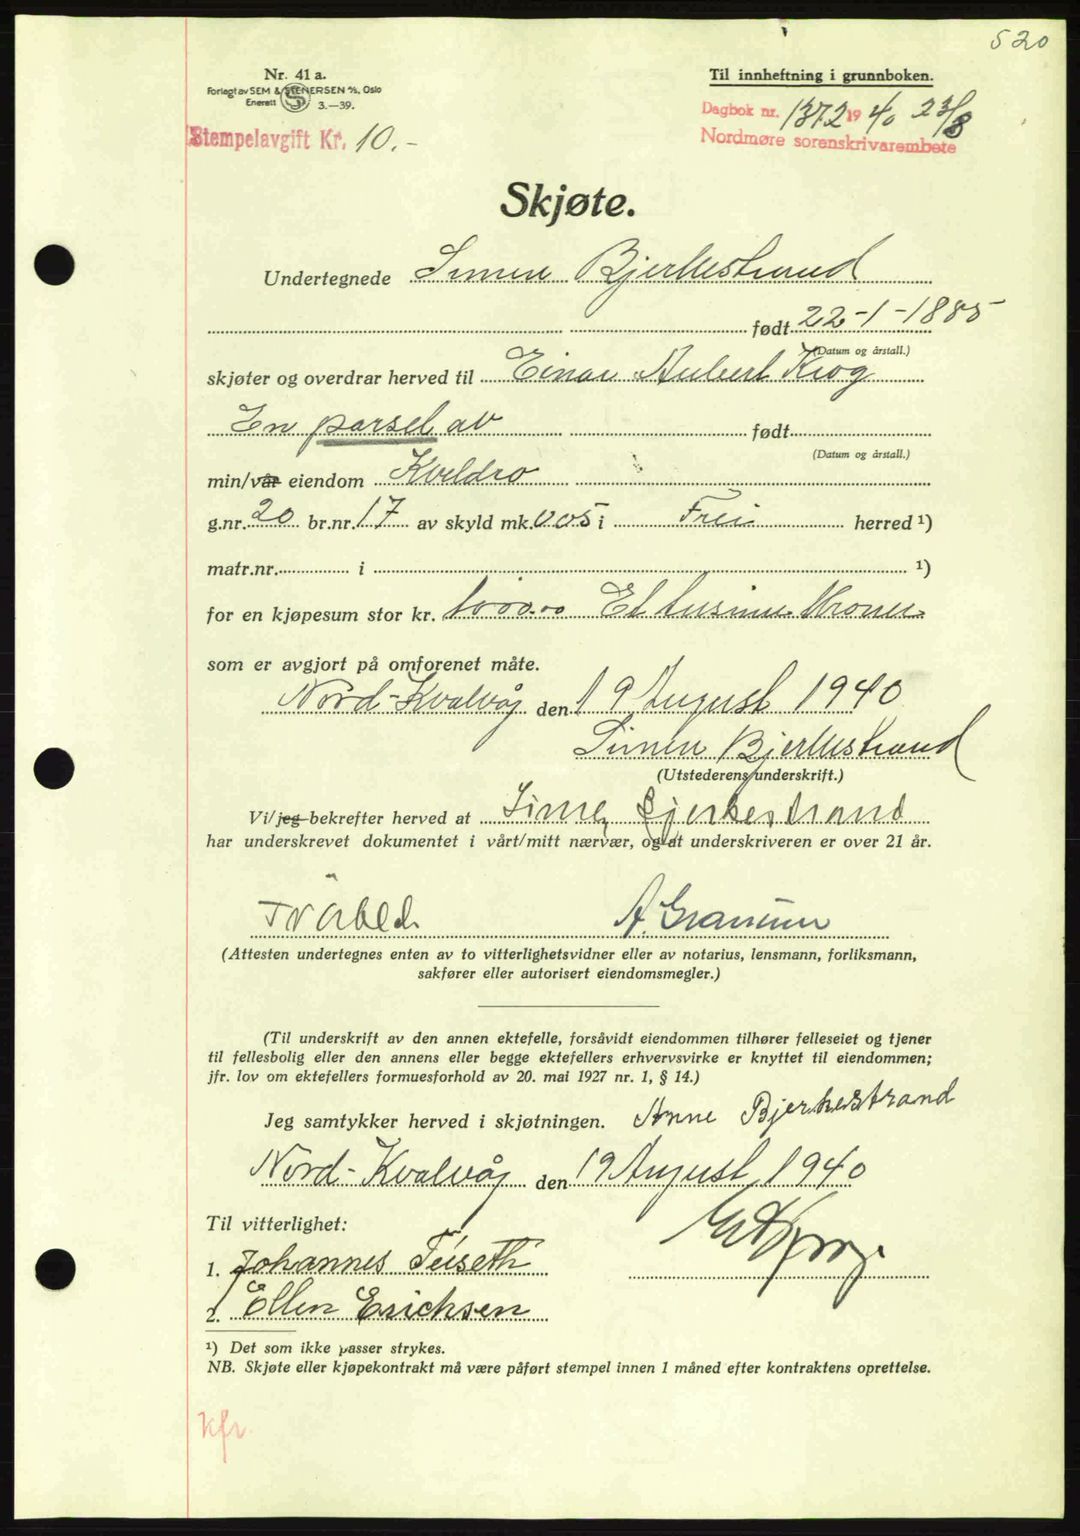 520
Nr. 41 a.
Forlagt av SEM & STENERSEN A/S, Oslo
Enerett S 3.—39.
Til innheftning i grunnboken.
Dagbok nr. 1372 1940 23/8
Nordmøre sorenskrivarembete
Stempelavgift Kr. 10.-
Skjøte.
Undertegnede Simen Bjerkestrand
født 22-1-1885
(Datum og årstall.)
skjøter og overdrar herved til Einar Aubert Krog
En parsel av født
(Datum og årstall.)
min/vår eiendom Kveldro
g.nr. 20 br.nr. 17 av skyld mk. 005 i Frei herred ¹)
matr.nr. i ¹)
for en kjøpesum stor kr. 1000.00 Et tusinn Kroner
som er avgjort på omforenet måte.
Nord-Kvalvåg den 19 August 1940
Simen Bjerkestrand
(Utstederens underskrift.)
Vi/jeg bekrefter herved at Simen Bjerkestrand
har underskrevet dokumentet i vårt/mitt nærvær, og at underskriveren er over 21 år.
A. Granum
(Attesten undertegnes enten av to vitterlighetsvidner eller av notarius, lensmann, forliksmann,
sakfører eller autorisert eiendomsmegler.)
(Til underskrift av den annen ektefelle, forsåvidt eiendommen tilhører felleseiet og tjener
til fellesbolig eller den annens eller begge ektefellers erhvervsvirke er knyttet til eiendommen;
jfr. lov om ektefellers formuesforhold av 20. mai 1927 nr. 1, § 14.)
Jeg samtykker herved i skjøtningen. Anne Bjerkestrand
Nord-Kvalvåg den 19 August 1940
Til vitterlighet:
1. Johannes Teiseth
2. Ellen Erichsen
¹) Det som ikke passer strykes.
NB. Skjøte eller kjøpekontrakt må være påført stempel innen 1 måned efter kontraktens oprettelse.
kfr.